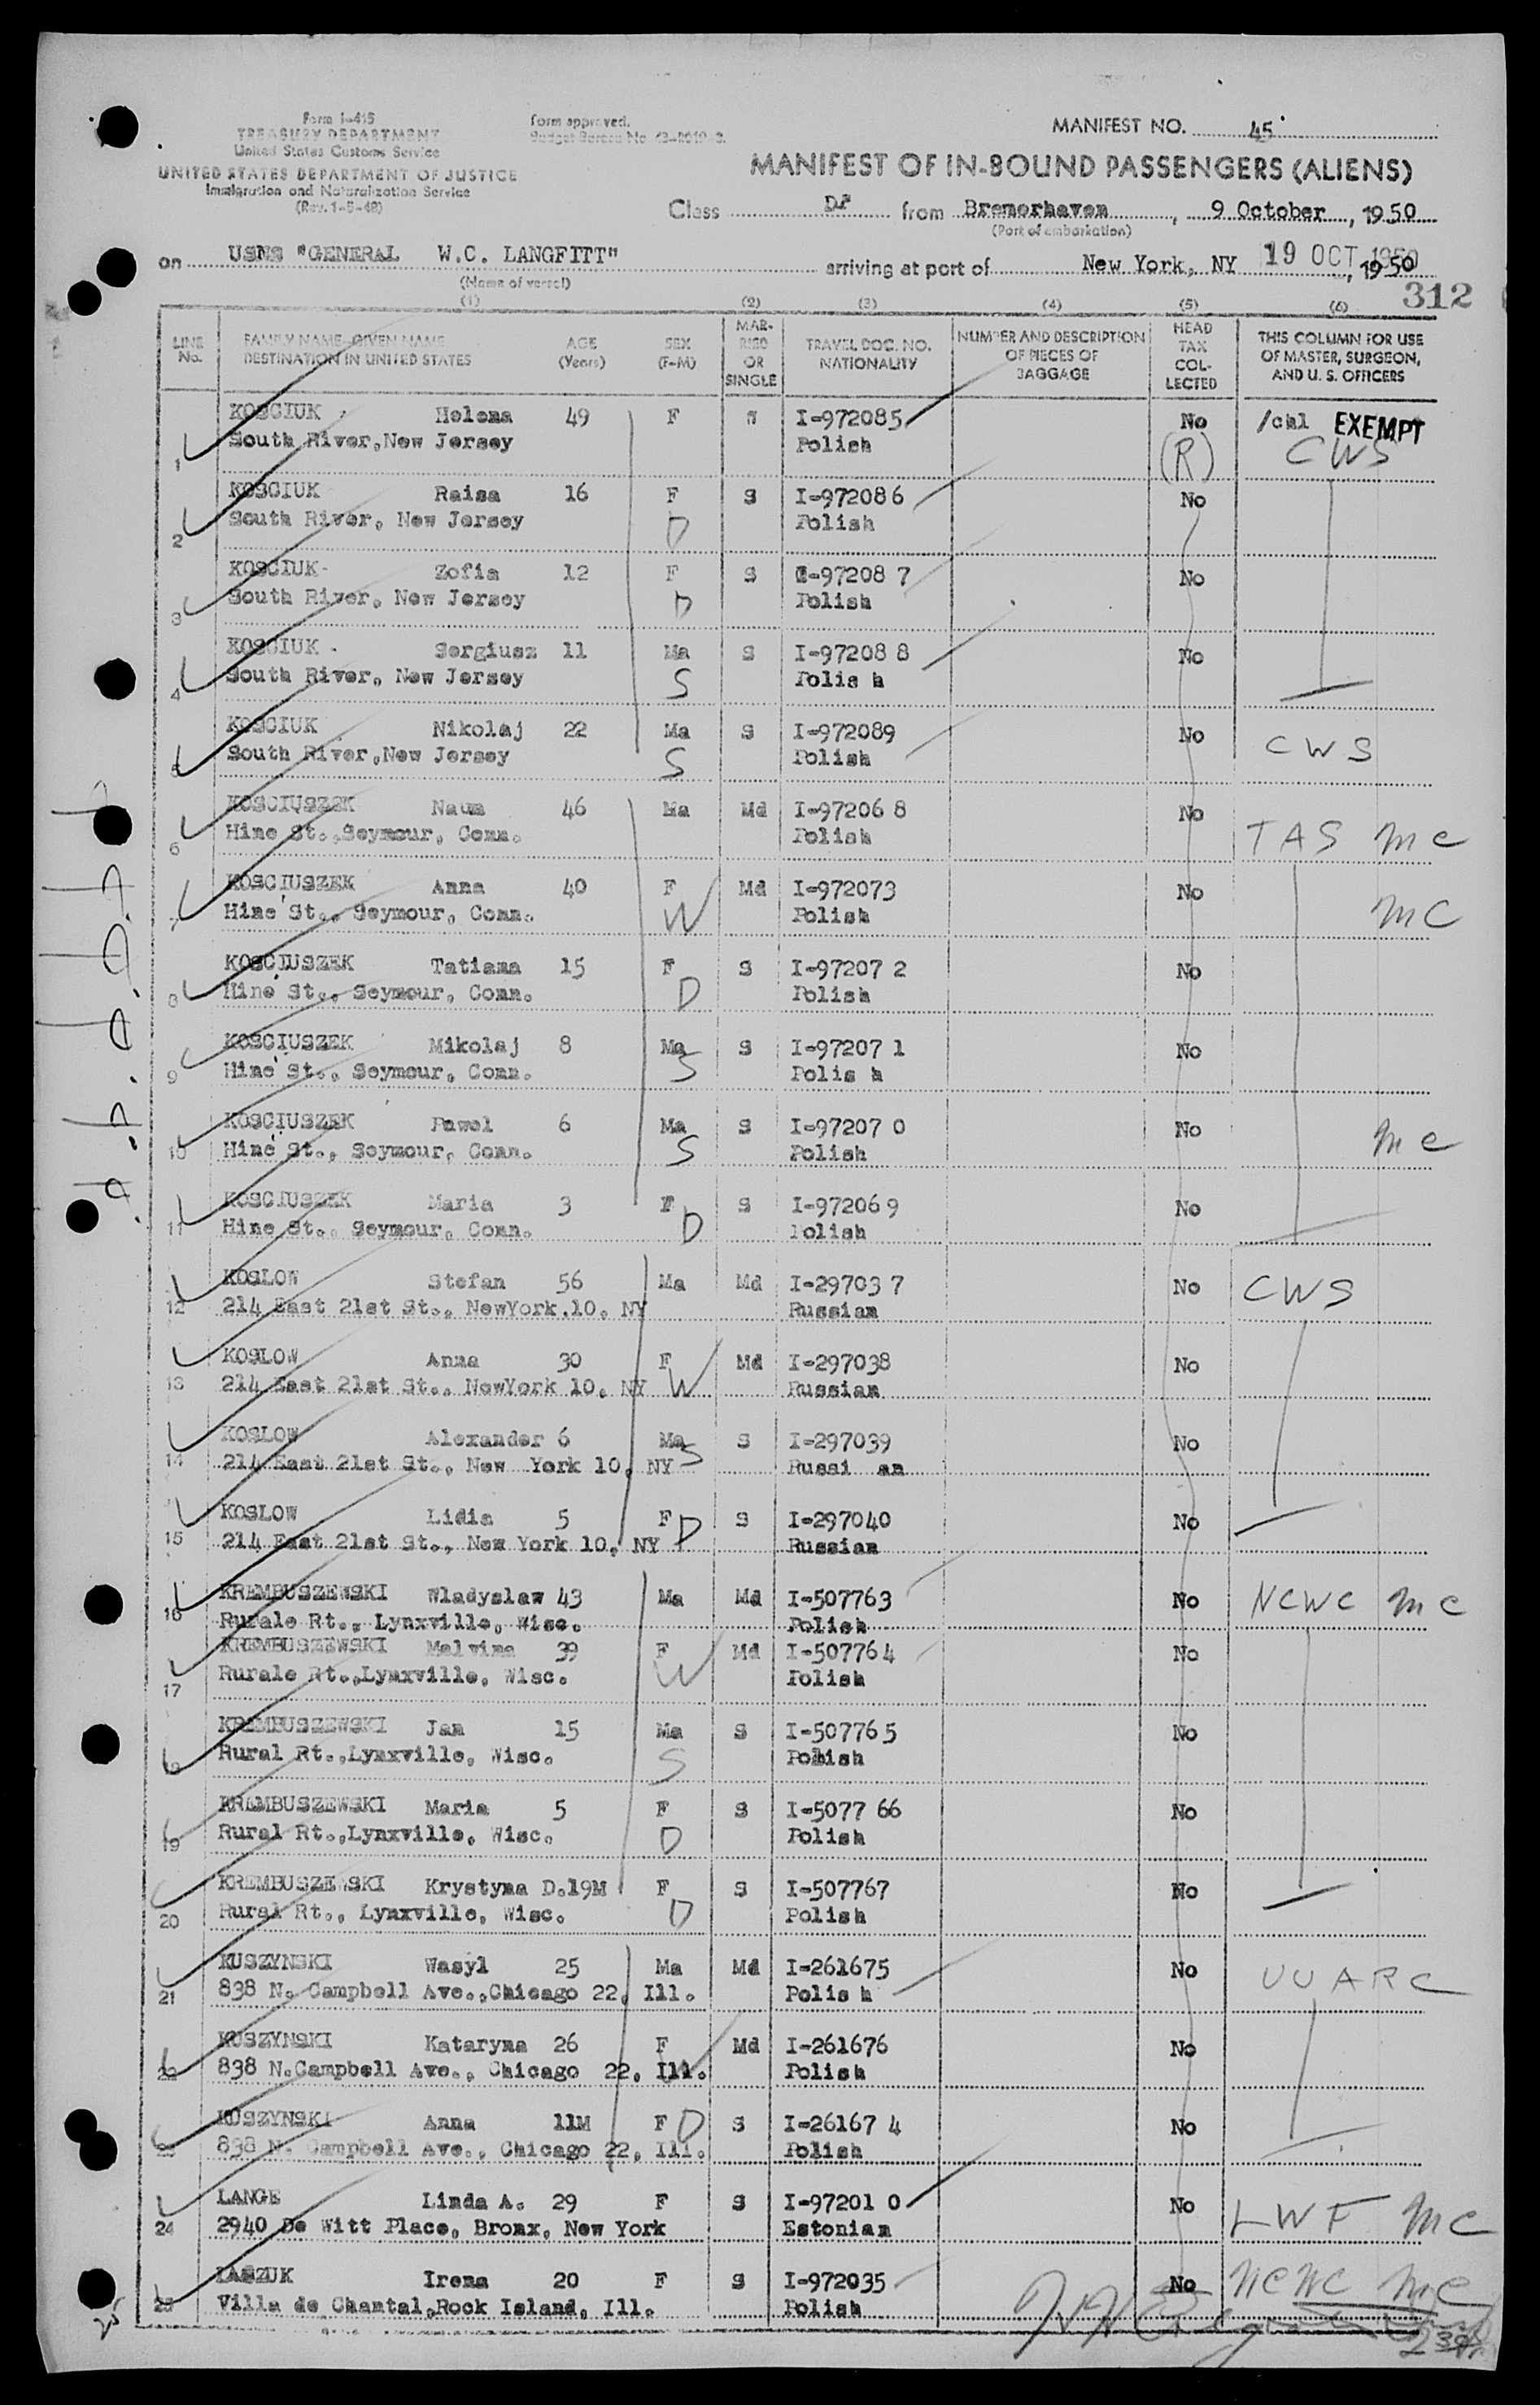 Form I-415
TREASURY DEPARTMENT
United States Customs Service
UNITED STATES DEPARTMENT OF JUSTICE
Immigration and Naturalization Service
(Rev. 1-5-48)
Form approved.
Budget Bureau No.
MANIFEST NO. 45
MANIFEST OF IN-BOUND PASSENGERS (ALIENS)
Class DP from Bremerhaven, 9 October, 1950
(Port of embarkation)
on USNS "GENERAL W.C. LANGFITT" arriving at port of New York, NY 19 OCT 1950, 1950
(Name of vessel)
312
(1) (2) (3) (4) (5) (6)
LINE No. FAMILY NAME-GIVEN NAME DESTINATION IN UNITED STATES AGE (Years) SEX (F-M) MARRIED OR SINGLE TRAVEL DOC. NO. NATIONALITY NUMBER AND DESCRIPTION OF PIECES OF BAGGAGE HEAD TAX COLLECTED THIS COLUMN FOR USE OF MASTER, SURGEON, AND U. S. OFFICERS
1 KOSCIUK Helena 49 F I-972085 No /chl EXEMPT
South River, New Jersey Polish (R) CWS
2 KOSCIUK Raisa 16 F S I-972086 No
South River, New Jersey D Polish
3 KOSCIUK Zofia 12 F S I-97208 7 No
South River, New Jersey D Polish
4 KOSCIUK Sergiusz 11 Ma S I-97208 8 No
South River, New Jersey S Polis h
5 KOSCIUK Nikolaj 22 Ma S I-972089 No CWS
South River, New Jersey S Polish
6 KOSCIUSZEK Naum 46 Ma Md I-97206 8 No TAS mc
Hine St., Seymour, Conn. Polish
7 KOSCIUSZEK Anna 40 F Md I-972073 No mc
Hine St., Seymour, Conn. W Polish
8 KOSCIUSZEK Tatiana 15 F S I-97207 2 No
Hine St., Seymour, Conn. D Polish
9 KOSCIUSZEK Mikolaj 8 Ma S I-97207 1 No
Hine St., Seymour, Conn. S Polis h
10 KOSCIUSZEK Pawel 6 Ma S I-97207 0 No mc
Hine St., Seymour, Conn. S Polish
11 KOSCIUSZEK Maria 3 F S I-97206 9 No
Hine St., Seymour, Conn. D Polish
12 KOSLOW Stefan 56 Ma Md I-29703 7 No CWS
214 East 21st St., NewYork.10, NY Russian
13 KOSLOW Anna 30 F Md I-297038 No
214 East 21st St., NewYork 10, NY W Russian
14 KOSLOW Alexander 6 Ma S I-297039 No
214 East 21st St., New York 10, NY S Russi an
15 KOSLOW Lidia 5 F D S I-297040 No
214 East 21st St., New York 10, NY Russian
16 KREMBUSZEWSKI Wladyslaw 43 Ma Md I-507763 No NCWC mc
Rurale Rt., Lynxville, Wisc. Polish
17 KREMBUSZEWSKI Malvina 39 F Md I-507764 No
Rurale Rt., Lynxville, Wisc. W Polish
18 KREMBUSZEWSKI Jan 15 Ma S I-507765 No
Rural Rt., Lynxville, Wisc. S Polish
19 KREMBUSZEWSKI Maria 5 F S I-5077 66 No
Rural Rt., Lynxville, Wisc. D Polish
20 KREMBUSZEWSKI Krystyna D. 19M F S I-507767 No
Rural Rt., Lynxville, Wisc. D Polish
21 KUSZYNSKI Wasyl 25 Ma Md I-261675 No UUARC
838 N. Campbell Ave., Chicago 22, Ill. Polis h
22 KUSZYNSKI Kataryna 26 F Md I-261676 No
838 N. Campbell Ave., Chicago 22, Ill. W Polish
23 KUSZYNSKI Anna 11M F D S I-26167 4 No
838 N. Campbell Ave., Chicago 22, Ill. Polish
24 LANGE Linda A. 29 F S I-97201 0 No LWF mc
2940 De Witt Place, Bronx, New York Estonian
25 LASZUK Irena 20 F S I-972035 No NCWC mc
Villa de Chantal, Rock Island, Ill. Polish